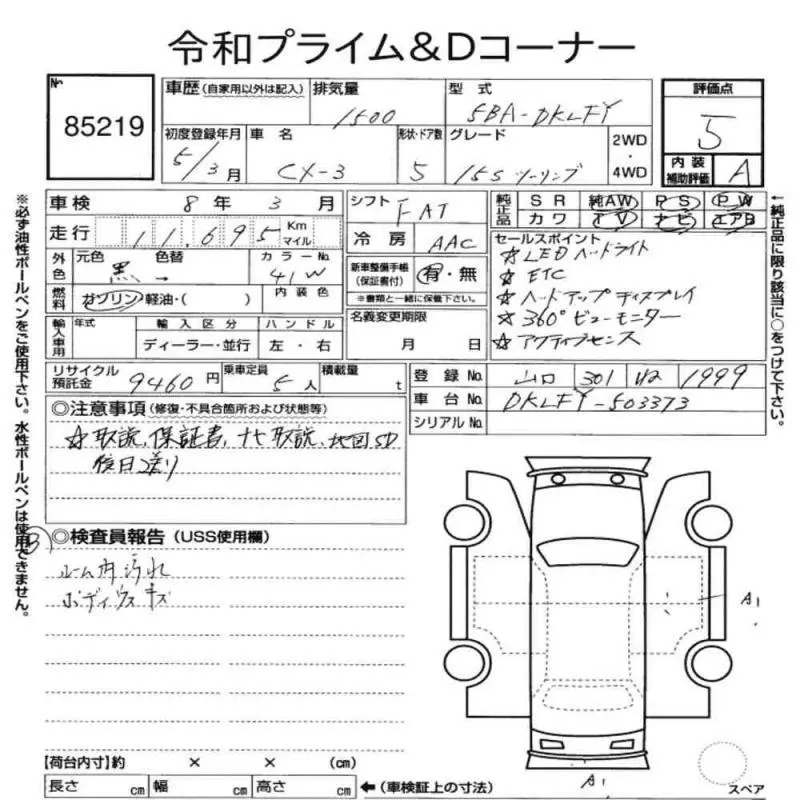 令和プライム&Dコーナー
No. 85219
車歴 (自家用以外は記入) 排気量 1500 型式 5BA-DKLFY 評価点 5
初度登録年月 5/3月 車名 CX-3 形状・ドア数 5 グレード 15S ツーリング 2WD・4WD 内装補助評価 A
車検 8年 3月 シフト FAT 純正品 SR 純AW PS PW
カワ TV ナビ エアB
走行 11,695 Km マイル 冷房 AAC
外色 元色 黒 → 色替 カラーNo. 41W
燃料 ガソリン 軽油・( ) 内装色
新車整備手帳 (保証書付) 有・無
※書類と一緒に保管下さい。
セールスポイント
☆LEDヘッドライト
☆ETC
☆ヘッドアップディスプレイ
☆360°ビューモニター
☆アクティブセンス
輸入車用 年式 輸入区分 ハンドル 名義変更期限
ディーラー・並行 左・右 月 日
リサイクル預託金 9460円 乗車定員 5人 積載量 t
登録No. 山口 301 1999
車台No. DKLFY-503373
シリアルNo.
◎注意事項 (修復・不具合箇所および状態等)
☆取説、保証書、ナビ取説、地図SD
後日送り
◎検査員報告 (USS使用欄)
ルーム内汚れ
ボディウスキズ
A1
A1
【荷台内寸】約 × × (cm)
長さ cm 幅 cm 高さ cm ←(車検証上の寸法)
スペア
※必ず油性ボールペンをご使用下さい。水性ボールペンは使用できません。
←純正品に限り該当に○をつけて下さい。